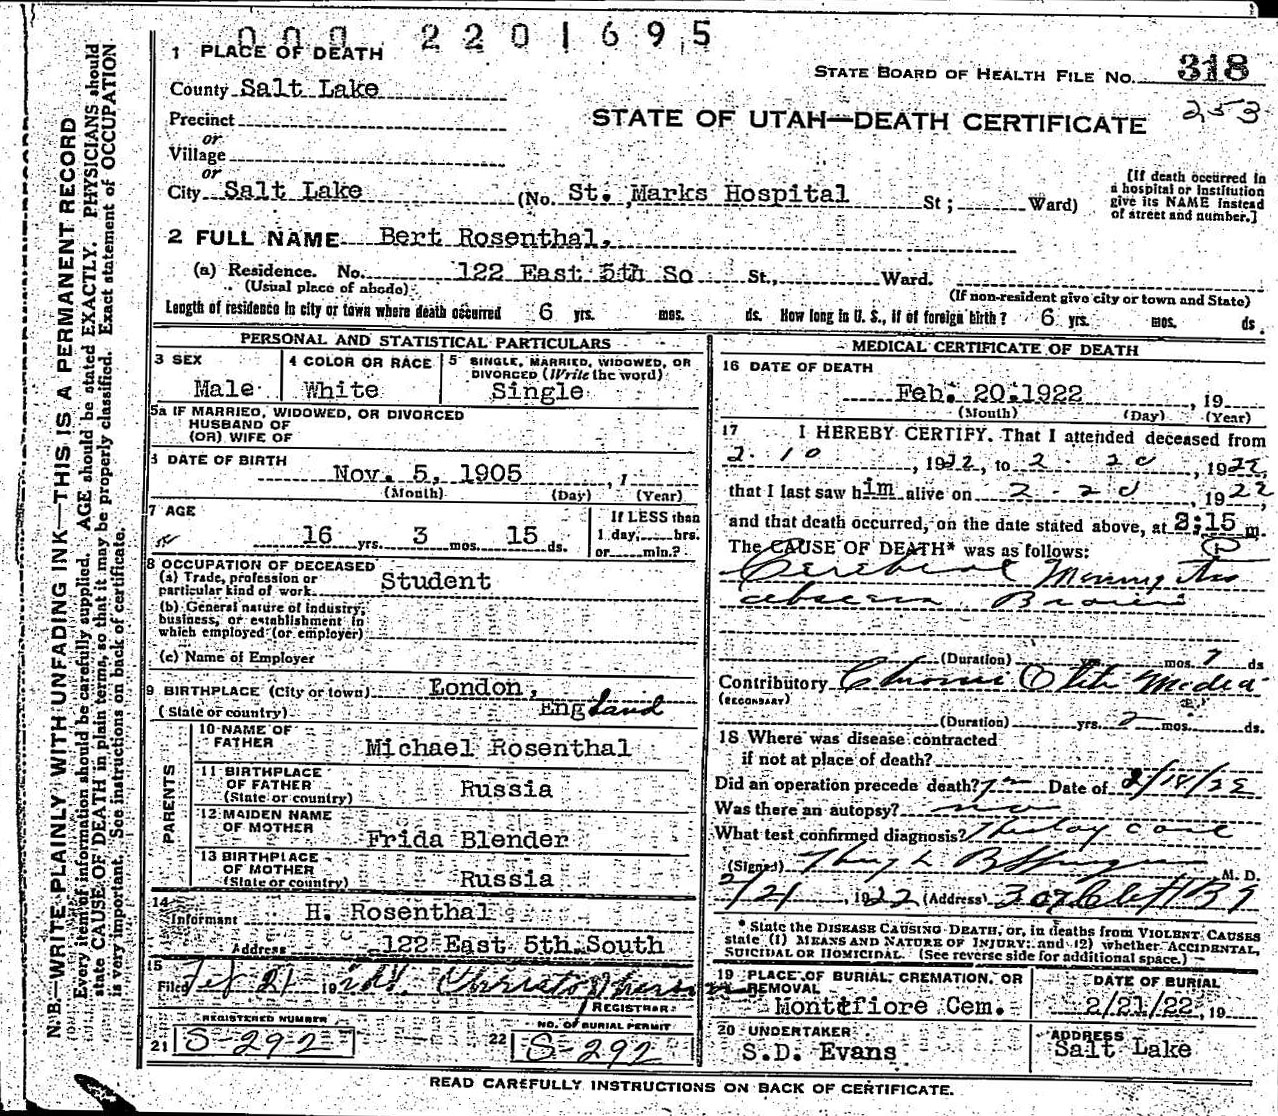 000 2201695
1 PLACE OF DEATH
STATE BOARD OF HEALTH FILE NO. 318
253
County Salt Lake
STATE OF UTAH—DEATH CERTIFICATE
Precinct
or
Village
or
City Salt Lake (No. St. Marks Hospital St; Ward)
[If death occurred in a hospital or institution give its NAME instead of street and number.]
2 FULL NAME Bert Rosenthal.
(a) Residence. No. 122 East 5th So St., Ward.
(Usual place of abode) (If non-resident give city or town and State)
Length of residence in city or town where death occurred 6 yrs. mos. ds. How long in U. S., if of foreign birth? 6 yrs. mos. ds.
PERSONAL AND STATISTICAL PARTICULARS
3 SEX Male
4 COLOR OR RACE White
5 SINGLE, MARRIED, WIDOWED, OR DIVORCED (Write the word) Single
5a IF MARRIED, WIDOWED, OR DIVORCED
HUSBAND OF
(OR) WIFE OF
DATE OF BIRTH
Nov. 5, 1905 , 1
(Month) (Day) (Year)
7 AGE
16 yrs. 3 mos. 15 ds.
If LESS than
1 day, hrs.
or min.?
8 OCCUPATION OF DECEASED
(a) Trade, profession or
particular kind of work Student
(b) General nature of industry,
business, or establishment in
which employed (or employer)
(c) Name of Employer
9 BIRTHPLACE (City or town) London,
(State or country) England
PARENTS
10 NAME OF
FATHER Michael Rosenthal
11 BIRTHPLACE
OF FATHER
(State or country) Russia
12 MAIDEN NAME
OF MOTHER Frida Blender
13 BIRTHPLACE
OF MOTHER
(State or country) Russia
14
Informant H. Rosenthal
Address 122 East 5th South
15
Filed Feb 21 19
REGISTRAR
REGISTERED NUMBER
21 S-292
NO. OF BURIAL PERMIT
22 S-292
MEDICAL CERTIFICATE OF DEATH
16 DATE OF DEATH
Feb. 20.1922 , 19
(Month) (Day) (Year)
17 I HEREBY CERTIFY. That I attended deceased from
2. 10 , 1922, to 2 - 20 , 1922,
that I last saw him alive on 2 - 20 1922
and that death occurred, on the date stated above, at 3:15 m.
P
The CAUSE OF DEATH* was as follows:
Cerebral Meningitis
abscess Brain
(Duration) yrs. mos. 7 ds
Contributory Chronic Otitis Media
(SECONDARY)
(Duration) yrs. 2 mos. ds.
18 Where was disease contracted
if not at place of death?
Did an operation precede death? yes Date of 2/18/22
Was there an autopsy? no
What test confirmed diagnosis?
(Signed) M. D.
2/21, 1922 (Address)
* State the DISEASE CAUSING DEATH, or, in deaths from VIOLENT CAUSES
state (1) MEANS AND NATURE OF INJURY; and (2) whether ACCIDENTAL,
SUICIDAL OR HOMICIDAL. (See reverse side for additional space.)
19 PLACE OF BURIAL, CREMATION, OR
REMOVAL
Montifiore Cem.
DATE OF BURIAL
2/21/22, 19
20 UNDERTAKER
S.D. Evans
ADDRESS
Salt Lake
READ CAREFULLY INSTRUCTIONS ON BACK OF CERTIFICATE.
N. B.—WRITE PLAINLY WITH UNFADING INK—THIS IS A PERMANENT RECORD
Every item of information should be carefully supplied. AGE should be stated EXACTLY. PHYSICIANS should
state CAUSE OF DEATH in plain terms, so that it may be properly classified. Exact statement of OCCUPATION
is very important. See instructions on back of certificate.